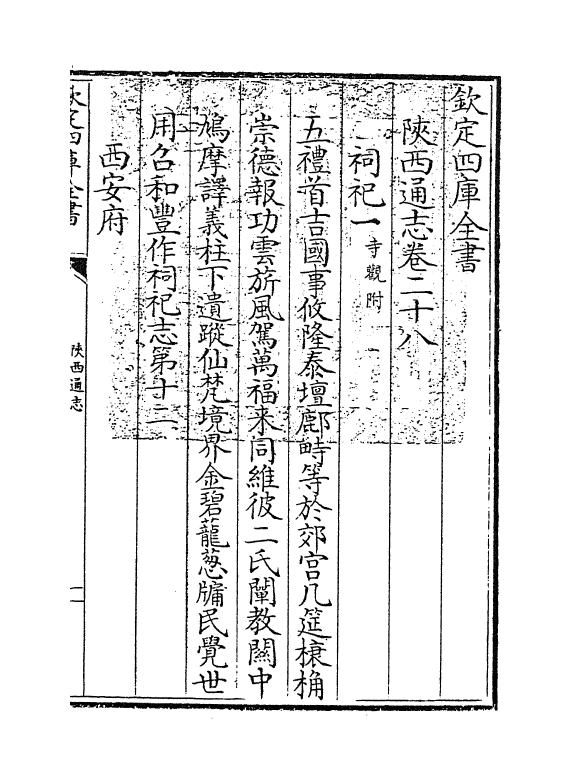 欽定四庫全書
陜西通志卷二十八
祠祀一寺觀附
五禮首吉國事攸隆泰壇鄜畤等於郊宫几筵榱桷
崇德報功雲旂風駕萬福来同維彼二氏闡教關中
鳩摩譯義柱下遺蹤仙梵境界金碧蘢葱牖民覺世
用召和豐作祠祀志第十二
西安府
欽定四庫全書
陜西通志
一